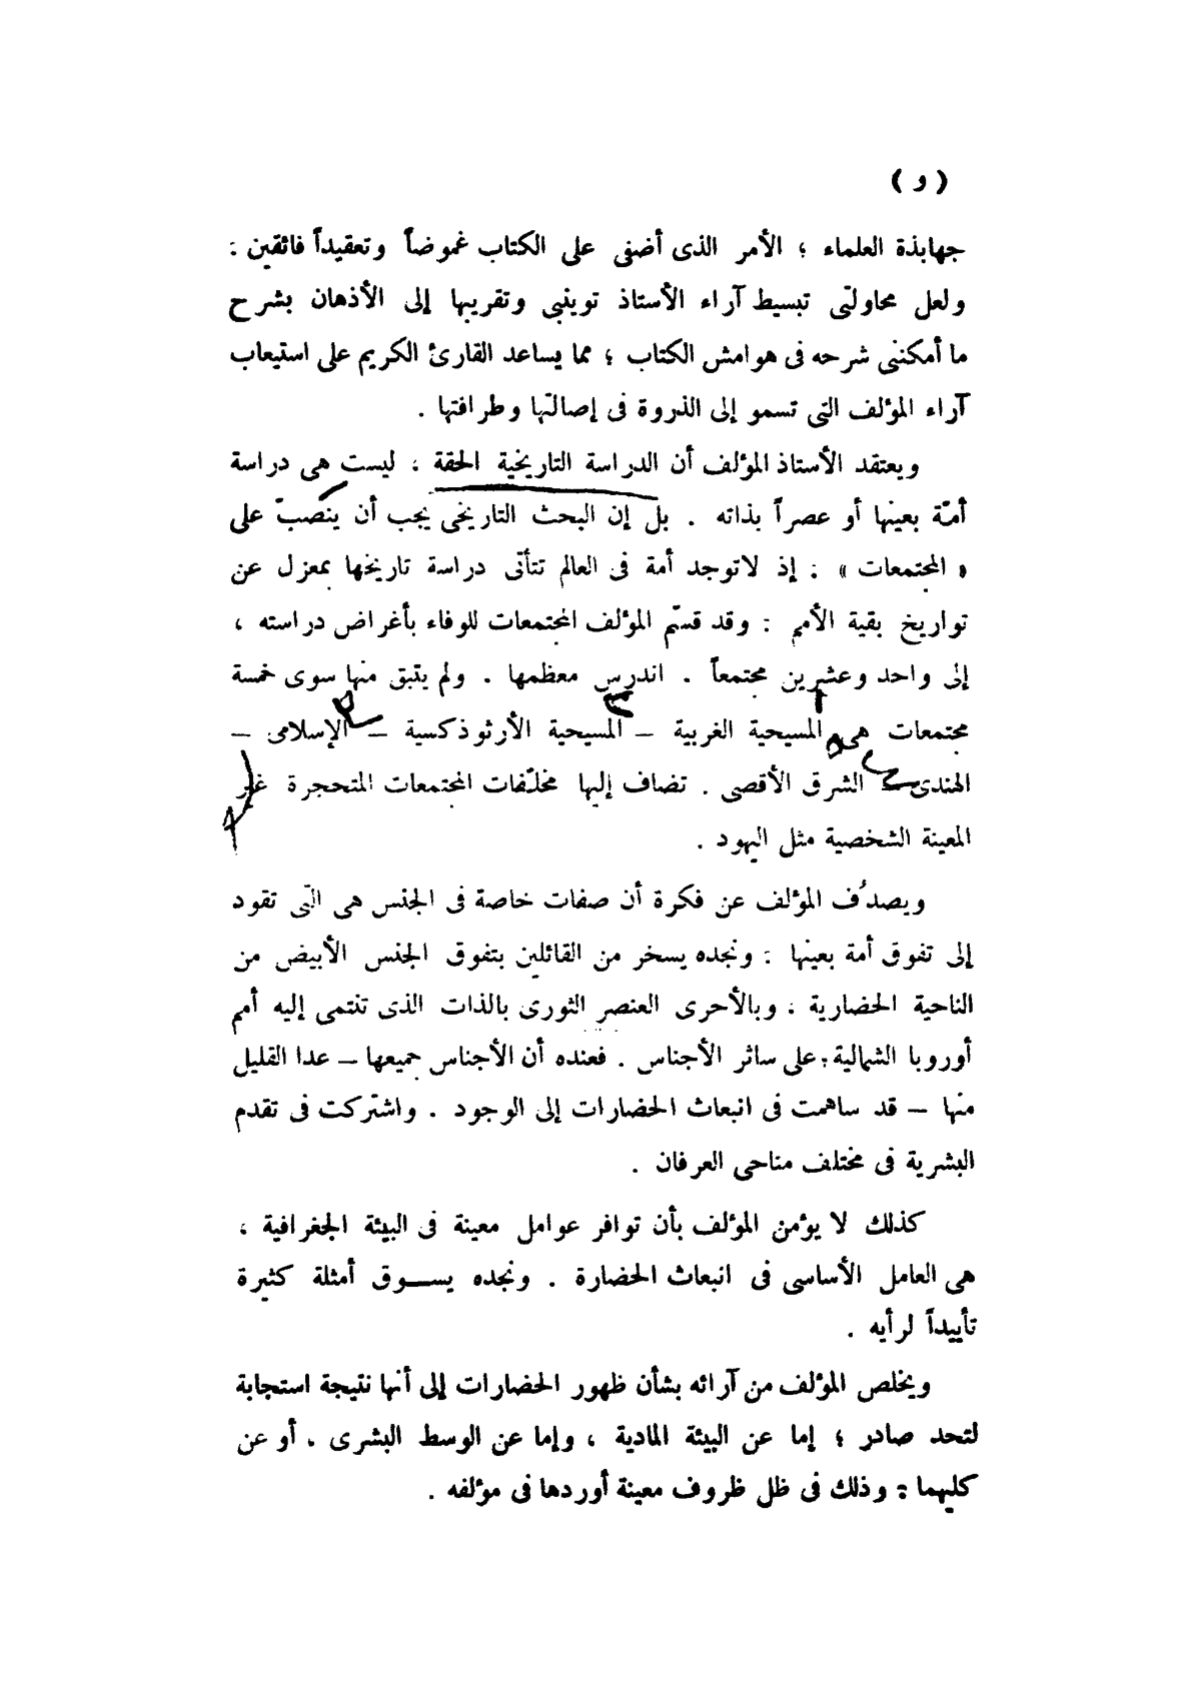 ( و )
جهابذة العلماء ؛ الأمر الذى أضفى على الكتاب غموضاً وتعقيداً فائقين .
ولعل محاولتى تبسيط آراء الأستاذ توينبى وتقريبها إلى الأذهان بشرح
ما أمكننى شرحه فى هوامش الكتاب ؛ مما يساعد القارئ الكريم على استيعاب
آراء المؤلف التى تسمو إلى الذروة فى إصالتها وطرافتها .
ويعتقد الأستاذ المؤلف أن الدراسة التاريخية الحقة ، ليست هى دراسة
أمّة بعينها أو عصراً بذاته . بل إن البحث التاريخى يجب أن ينصبّ على
« المجتمعات » : إذ لاتوجد أمة فى العالم تتأتى دراسة تاريخها بمعزل عن
تواريخ بقية الأمم : وقد قسّم المؤلف المجتمعات للوفاء بأغراض دراسته ،
إلى واحد وعشرين مجتمعاً . اندرس معظمها . ولم يتبق منها سوى خمسة
مجتمعات هى المسيحية الغربية – المسيحية الأرثوذكسية – الإسلامى –
الهندى – الشرق الأقصى . تضاف إليها مخلّفات المجتمعات المتحجرة غير
المعينة الشخصية مثل اليهود .
ويصدُف المؤلف عن فكرة أن صفات خاصة فى الجنس هى التى تقود
إلى تفوق أمة بعينها : ونجده يسخر من القائلين بتفوق الجنس الأبيض من
الناحية الحضارية ، وبالأحرى العنصر الثورى بالذات الذى تنتمى إليه أمم
أوروبا الشمالية ؛ على سائر الأجناس . فعنده أن الأجناس جميعها – عدا القليل
منها – قد ساهمت فى انبعاث الحضارات إلى الوجود . واشتركت فى تقدم
البشرية فى مختلف مناحى العرفان .
كذلك لا يؤمن المؤلف بأن توافر عوامل معينة فى البيئة الجغرافية ،
هى العامل الأساسى فى انبعاث الحضارة . ونجده يســوق أمثلة كثيرة
تأييداً لرأيه .
ويخلص المؤلف من آرائه بشأن ظهور الحضارات إلى أنها نتيجة استجابة
لتحد صادر ؛ إما عن البيئة المادية ، وإما عن الوسط البشرى . أو عن
كليهما : وذلك فى ظل ظروف معينة أوردها فى مؤلفه .